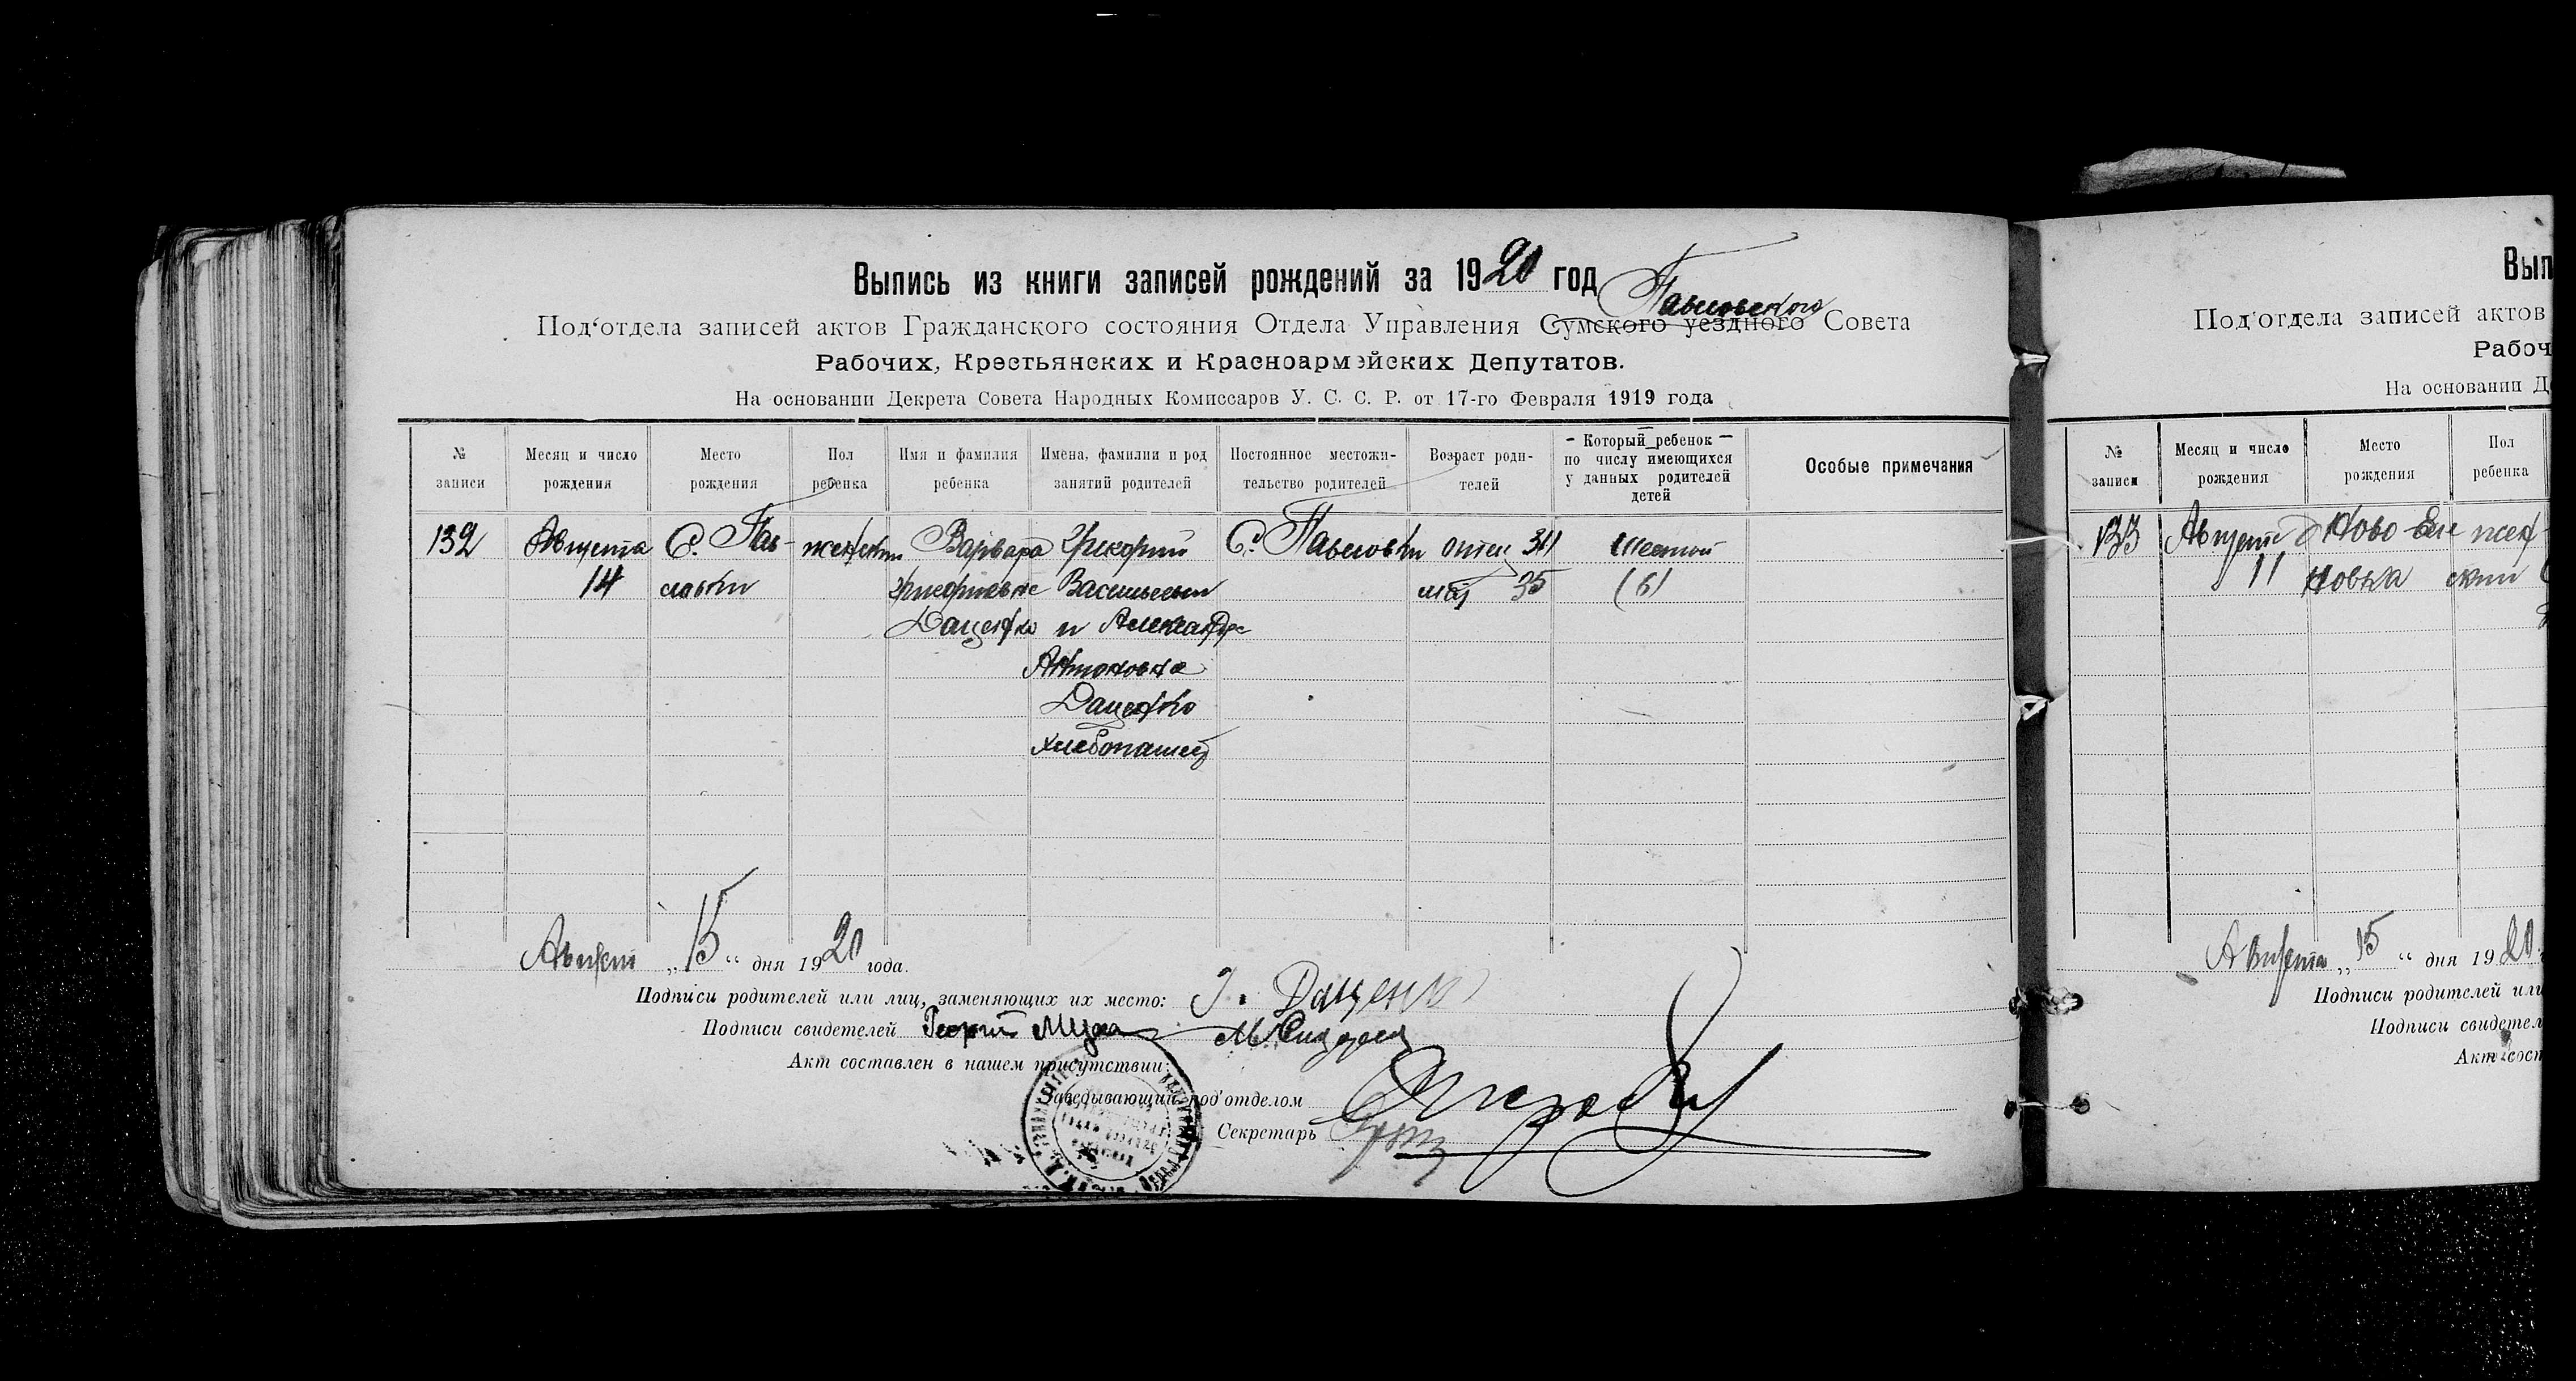 Выпись из книги записей рождений за 1920 год
Павловского
Под‘отдела записей актов Гражданского состояния Отдела Управления Сумского уездного Совета
Рабочих, Крестьянских и Красноармейских Депутатов.
На основании Декрета Совета Народных Комиссаров У. С. С. Р. от 17-го Февраля 1919 года
№ записи
Месяц и число рождения
Место рождения
Пол ребенка
Имя и фамилия ребенка
Имена, фамилии и род занятий родителей
Постоянное местожительство родителей
Возраст родителей
Который ребенок по числу имеющихся у данных родителей детей
Особые примечания
132 Августа С. Пав- женский Варвара Григорий С. Павловки отец 34 Шестой
14 ловки Григорьевна Васильевич мать 35 (6)
Даценко и Александра
Антоновна
Даценко
хлебопашец
Август „15“ дня 1920 года.
Подписи родителей или лиц, заменяющих их место: Г. Даценко
Подписи свидетелей Георгий
Акт составлен в нашем присутствии:
Заведывающий под‘отделом
Секретарь
Вып
Под‘отдела записей актов
Рабоч
На основании Де
№ записи
Месяц и число рождения
Место рождения
Пол ребенка
133 Августа Ново- жен-
11 новка ский
Августа „15“ дня 1920
Подписи родителей или
Подписи свидетел
Акт сост